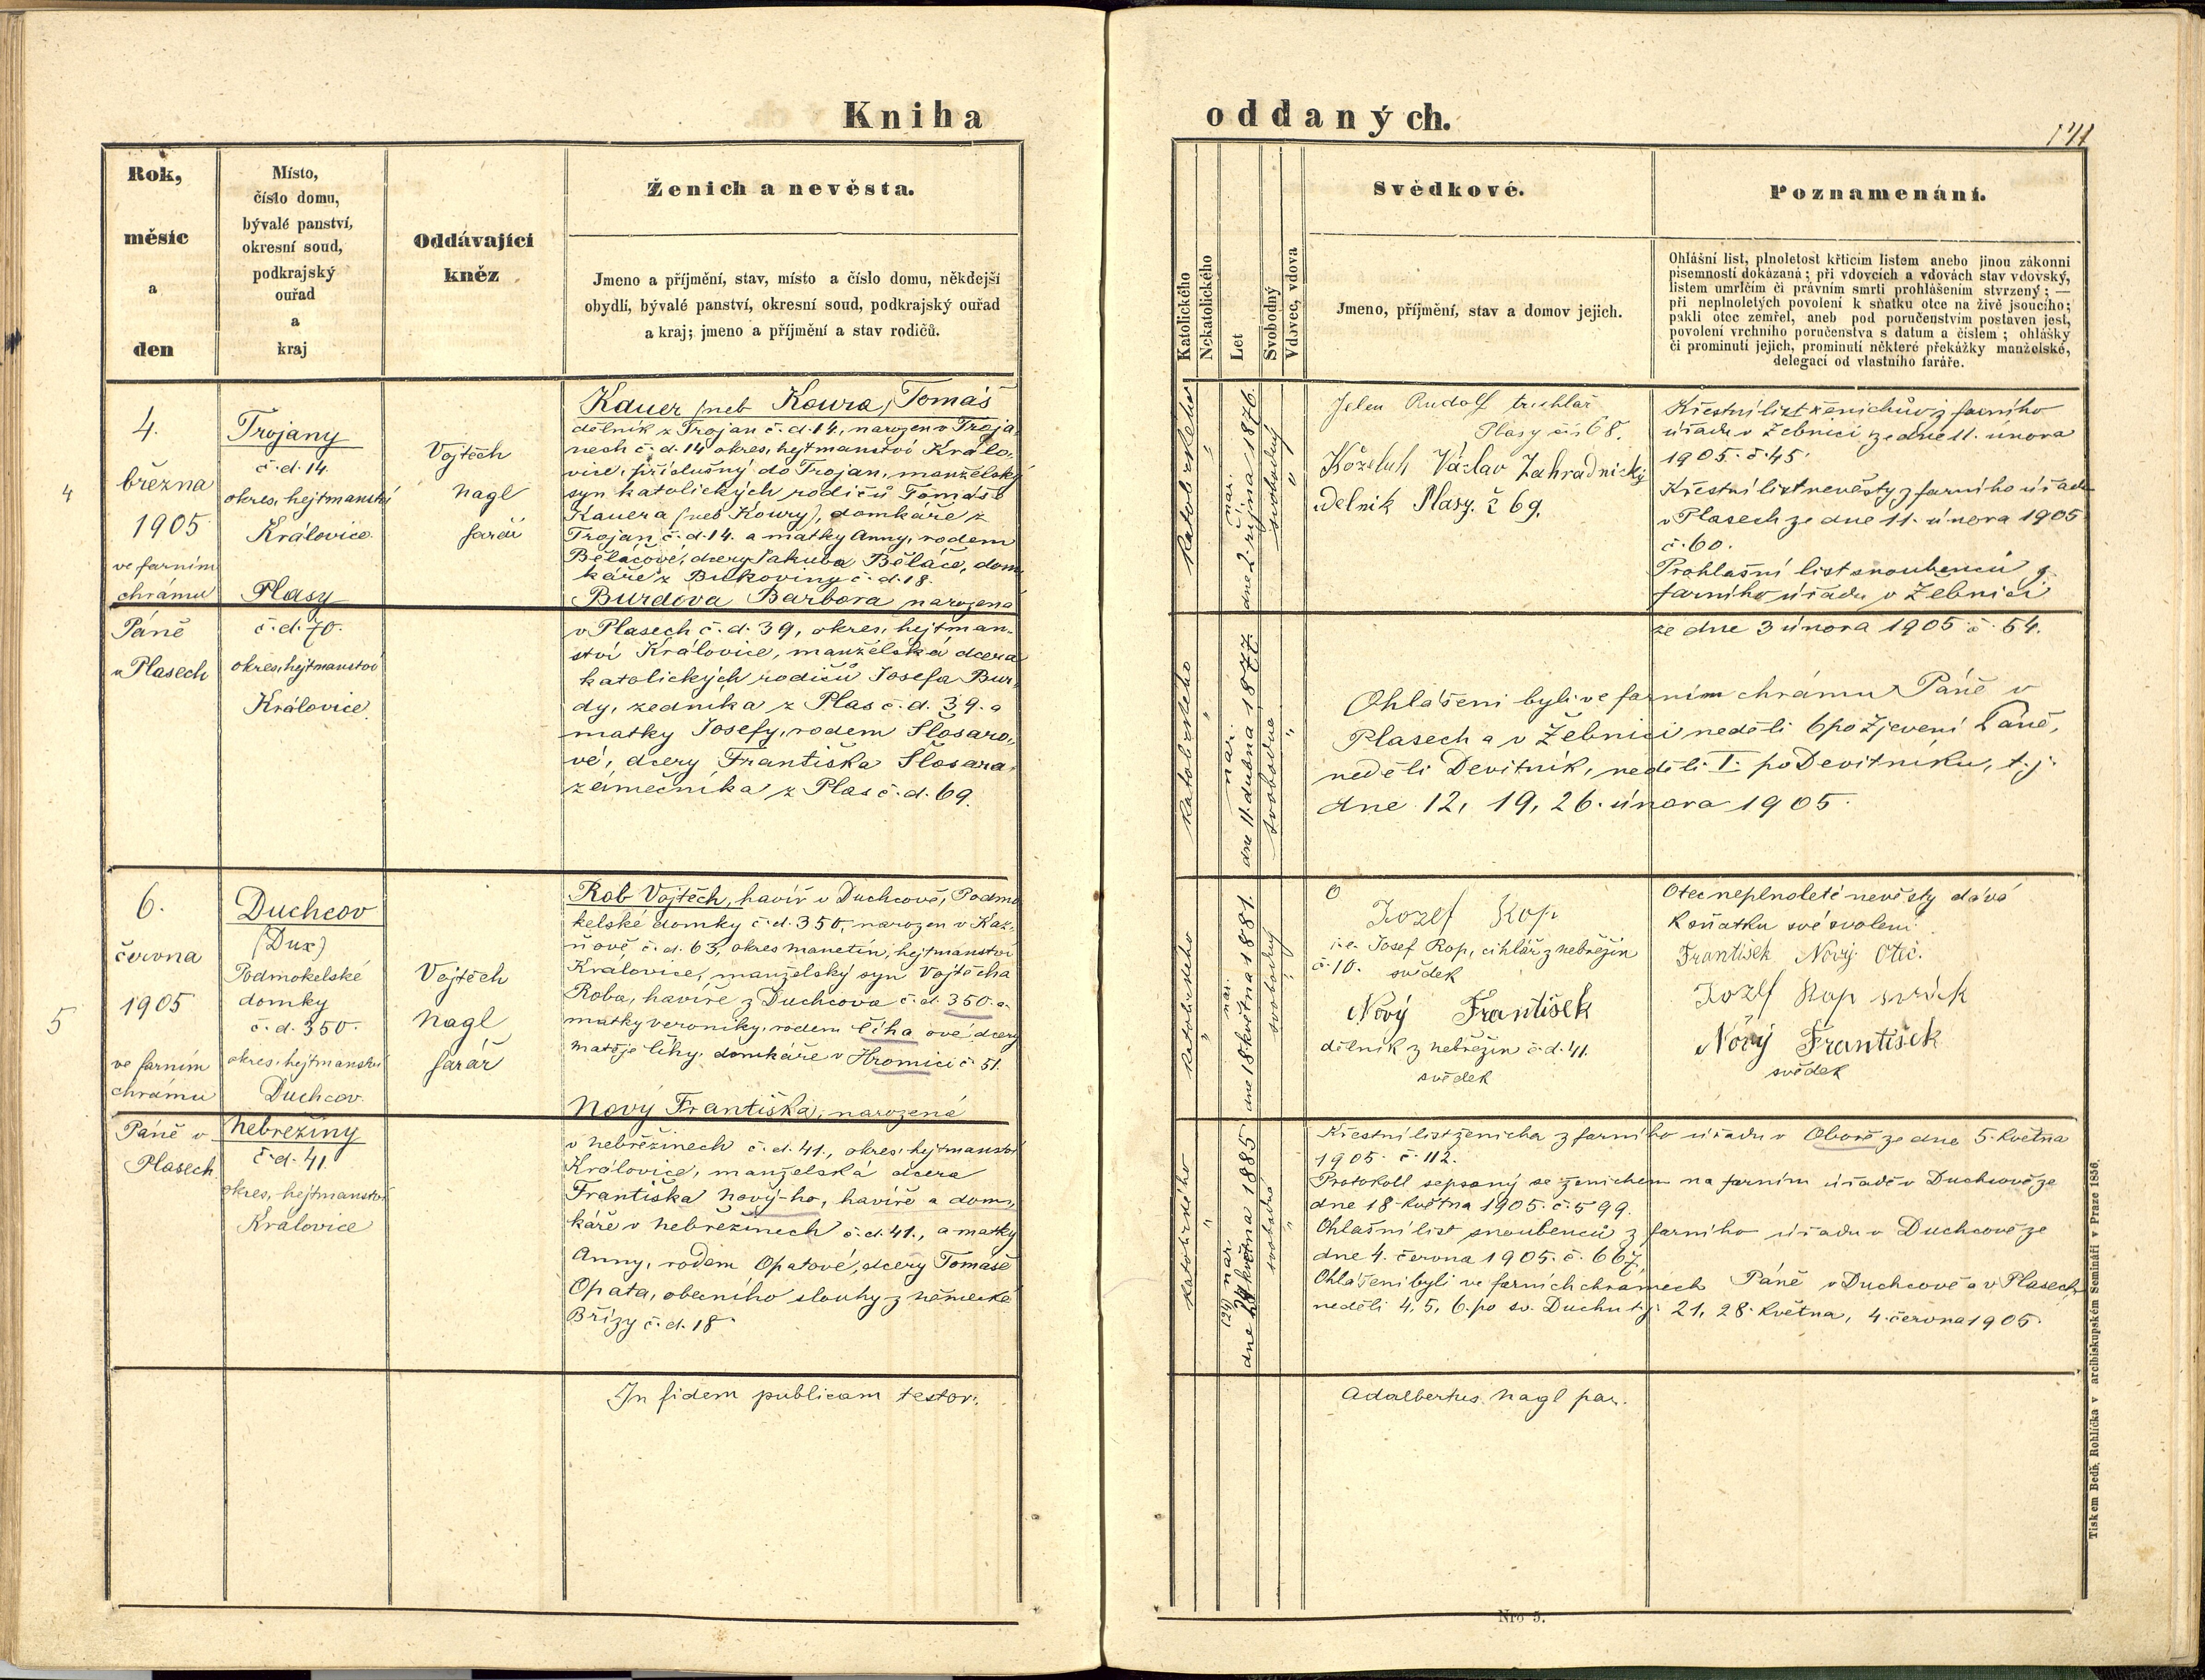 Kniha
oddaných.
141
Rok,
měsíc
a
den
Místo,
číslo domu,
bývalé panství,
okresní soud,
podkrajský
ouřad
a
kraj
Oddávající
kněz
Ženich a nevěsta.
Jmeno a příjmění, stav, místo a číslo domu, někdejší
obydlí, bývalé panství, okresní soud, podkrajský ouřad
a kraj; jmeno a příjmění a stav rodičů.
Katolického
Nekatolického
Let
Svobodný
Vdovec, vdova
Svědkové.
Jmeno, příjmění, stav a domov jejich.
Poznamenání.
Ohlášní list, plnoletost křticím listem anebo jinou zákonní
písemností dokázaná; při vdovcích a vdovách stav vdovský,
listem umrlčím či právním smrti prohlášením stvrzený; —
při neplnoletých povolení k sňatku otce na živě jsoucího;
pakli otec zemřel, aneb pod poručenstvím postaven jest,
povolení vrchního poručenstva s datum a číslem; ohlášky
či prominutí jejich, prominutí některé překážky manželské,
delegací od vlastního faráře.
4
4.
března
1905
ve farním
chrámu
Páně
v Plasech
Trojany
č.d. 14.
okres. hejtmanství
Kralovice
Plasy
č.d. 70.
okres. hejtmanství
Kralovice.
Vojtěch
Nagl
farář
Kauer (neb Koura) Tomáš
dělník z Trojan č.d. 14., narozen v Troja-
nech č.d. 14 okres. hejtmanství Kralo-
vice, příslušný do Trojan, manželský
syn katolických rodičů Tomáše
Kauera (neb Koury), domkáře z
Trojan č.d. 14. a matky Anny, rodem
Běláčové, dcery Jakuba Běláče, dom-
káře z Bukoviny č.d. 18.
Burdova Barbora narozená
v Plasech č.d. 39, okres. hejtman-
ství Kralovice, manželská dcera
katolických rodičů Josefa Bur-
dy, zedníka z Plas č.d. 39. a
matky Josefy, rodem Šlosaro-
vé, dcery Františka Šlosara,
zámečníka z Plas č.d. 69.
katolického
"
nar.
dne 2. října 1876.
svobodný
"
katolického
"
nar.
dne 11. dubna 1877.
svobodna
"
Jelen Rudolf truhlář
Plasy čís 68.
Koželuh Václav Zahradnický
delnik Plasy. č 69.
Křestní list ženichův z farního
úřadu v Žebnici ze dne 11. února
1905. č. 45.
Křestní list nevěsty z farního úřadu
v Plasech ze dne 11. února 1905
č. 60.
Prohlašní list snoubenců z
farního úřadu v Žebnici
ze dne 3 února 1905 č. 54.
Ohlášeni byli ve farním chrámu Páně v
Plasech a v Žebnici neděli 6 po Zjevení Páně,
neděli Devítník, neděli I. po Devítníku, t.j.
dne 12, 19, 26. února 1905.
5
6.
června
1905
ve farním
chrámu
Páně v
Plasech.
Duchcov
(Dux)
Podmokelské
domky
č.d. 350.
okres. hejtmanství
Duchcov.
Nebřeziny
č.d. 41.
okres. hejtmanství
Kralovice
Vojtěch
Nagl
farář
Rob Vojtěch, havíř v Duchcově, Podmo-
kelské domky č.d. 350, narozen v Kaz-
ňově č.d. 63, okres manetín, hejtmanství
Kralovice, manželský syn Vojtěcha
Roba, havíře z Duchcova č.d. 350. a
matky Veroniky, rodem Číha ové dcery
Matěje Číhy, domkáře v Hromici č. 51.
Nový Františka, narozená
v Nebřežinech č.d. 41., okres. hejtmanství
Kralovice, manželská dcera
Františka Nový-ho, havíře a dom-
káře v Nebřežinech č.d. 41., a matky
Anny, rodem Opatové, dcery Tomáše
Opata, obecního slouhy z německé
Břízy č.d. 18.
katolického
"
nar.
dne 18 května 1881.
svobodný
"
katolického
"
(24) nar.
dne 24 května 1885
svobodná
"
Jozef Rop
i.e. Josef Rop, cihlář z Nebřežin
č. 10. svědek
Nový František
dělník z Nebřežin č.d. 41.
svědek
Otec neplnoleté nevěsty dává
k sňatku své svolení
František Nový Otec.
Jozef Rop
Nový František
svědek
Křestní list ženicha z farního úřadu v Oboře ze dne 5. května
1905. č. 112.
Protokoll sepsaný se ženichem na farním úřadě v Duchcově ze
dne 18. května 1905. č. 599.
Ohlašní list snoubenců z farního úřadu v Duchcově ze
dne 4. června 1905. č. 667.
Ohlášeni byli ve farních chrámech Páně v Duchcově a v Plasech
neděli 4, 5, 6. po sv. Duchu t.j. 21, 28. května, 4. června 1905.
In fidem publicam testor:
Adalbertus Nagl par.
Nro 5.
Tiskem Bedř. Rohlíčka v arcibiskupském Semináři v Praze 1856.